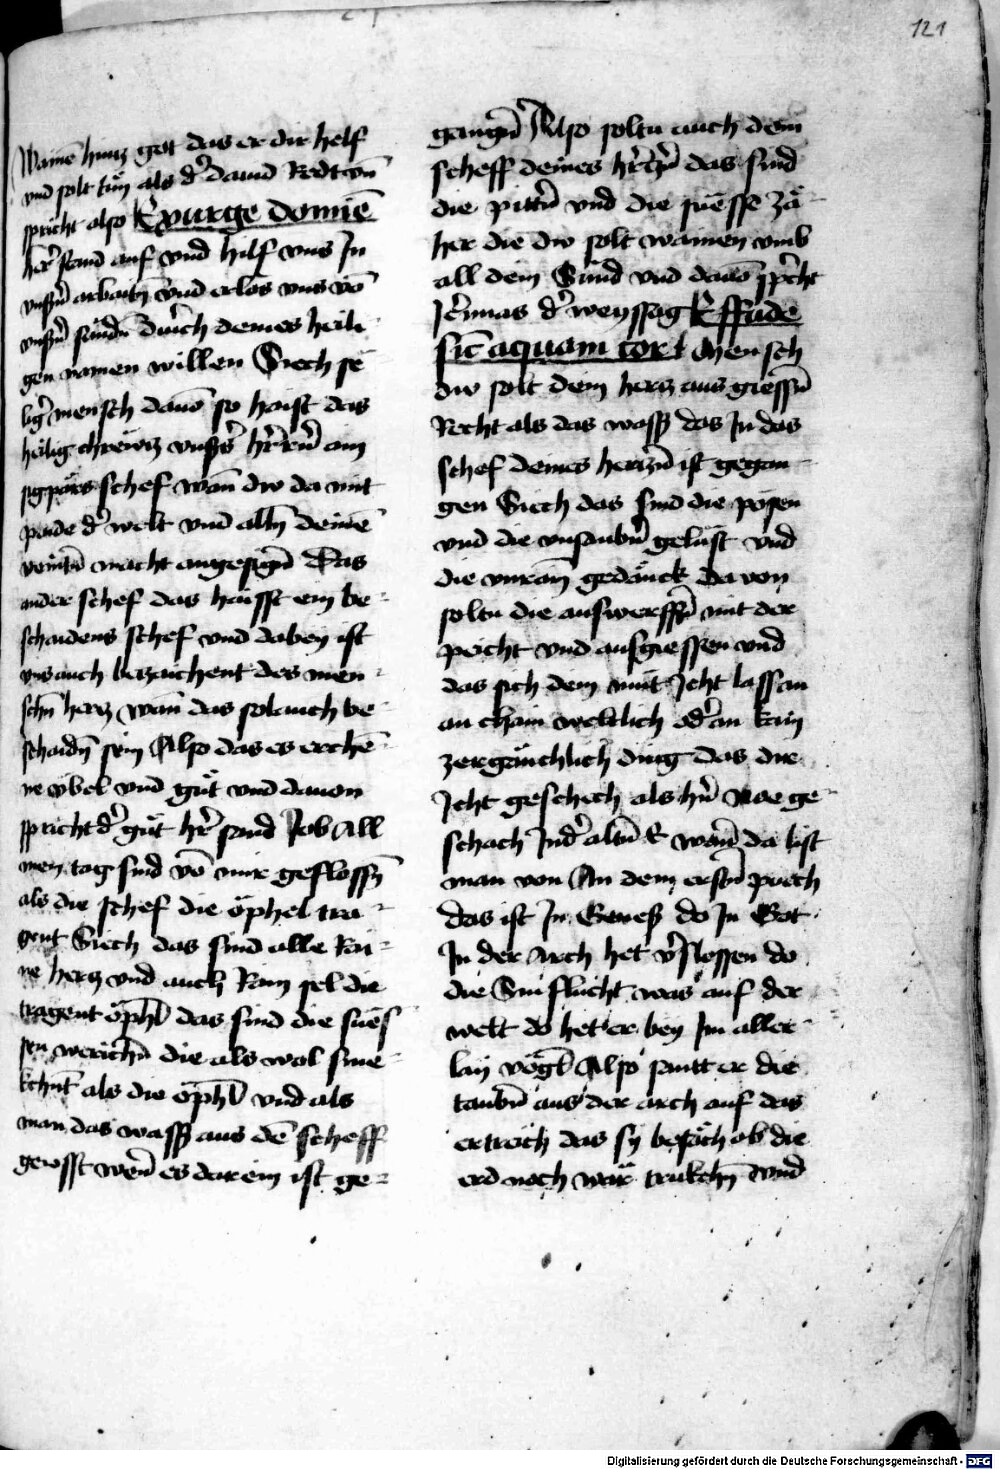 121
Wainē hincz got das er dir helf
vnd solt tün als d' dauid Redt vnd
spricht also Exurge domiē
her' stand auf vnd hilf vns In
vnsn' arbaitn vnd erlos vns vō
vnsn' sundn durch deines heili-
gen namen willen Siech se
lig' mensch dauō so haist das
heilig chrewcz vnss's hr'rn' ain
sigpärs schef wan dw da mit
paide d' welt vnd alln deinē
veintn macht angesign' Das
ander schef das haysst ein be-
schaidens schef vnd dabey ist
vns auch beczaichent des men-
schn hercz wan das sol auch be-
schaidn sein Also das es erchē-
ne vbel vnd güt vnd dauon
spricht d' güt hr' sand Job All
mein tag sind vō mir geflossn
als die schef die öphel tra-
gent Siech das sind alle Rai-
ne hercz vnd auch Rain sel die
tragent öphl das sind die sües-
sen werichn die als wol sme-
kchnt als die öphl vnd als
man das wass' aus dē scheff
gewsst wen es dar ein ist ge-
gangn' Also soltu auch dein
scheff deines hr'czn das sind
die pittn' vnd die süesse zä
her die dw solt wainen vmb
all dein Sünd vnd dauō sp'cht
Je'imas d' weyssag Effude
sic aquam cor t Mensch
dw solt dein hercz aus giessn
Recht als das wass' das In das
schef deines herczn ist gegan-
gen Siech das sind die posen
vnd die vnsaubn' gelüst vnd
die vnrain gedänck Da von
soltu die auswerffn' mit der
peicht vnd ausgiessen vnd
das sich dein müt Icht lassan
an chain weltlich od' an kain
zergänchlich ding das dir
Icht geschech als hn' Noe ge-
schach Ind' altn E wan da list
man von An dem erstn puech
das ist In Genes' do In Got
In der Arch het v'slossen do
die Sinflucht was auf der
welt do het er bey Im aller
lay vögl Also santt er die
taubn aus der arch auf das
ertreich das sy besäch ob die
erd noch wär trukchn vnd
Digitalisierung gefördert durch die Deutsche Forschungsgemeinschaft - DFG